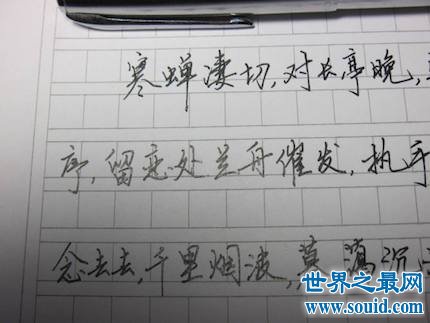 寒蝉凄切,对长亭晚,
序,留恋处兰舟催发,执手
念去去,千里烟波,暮霭沉
世界之最网
www.souid.com